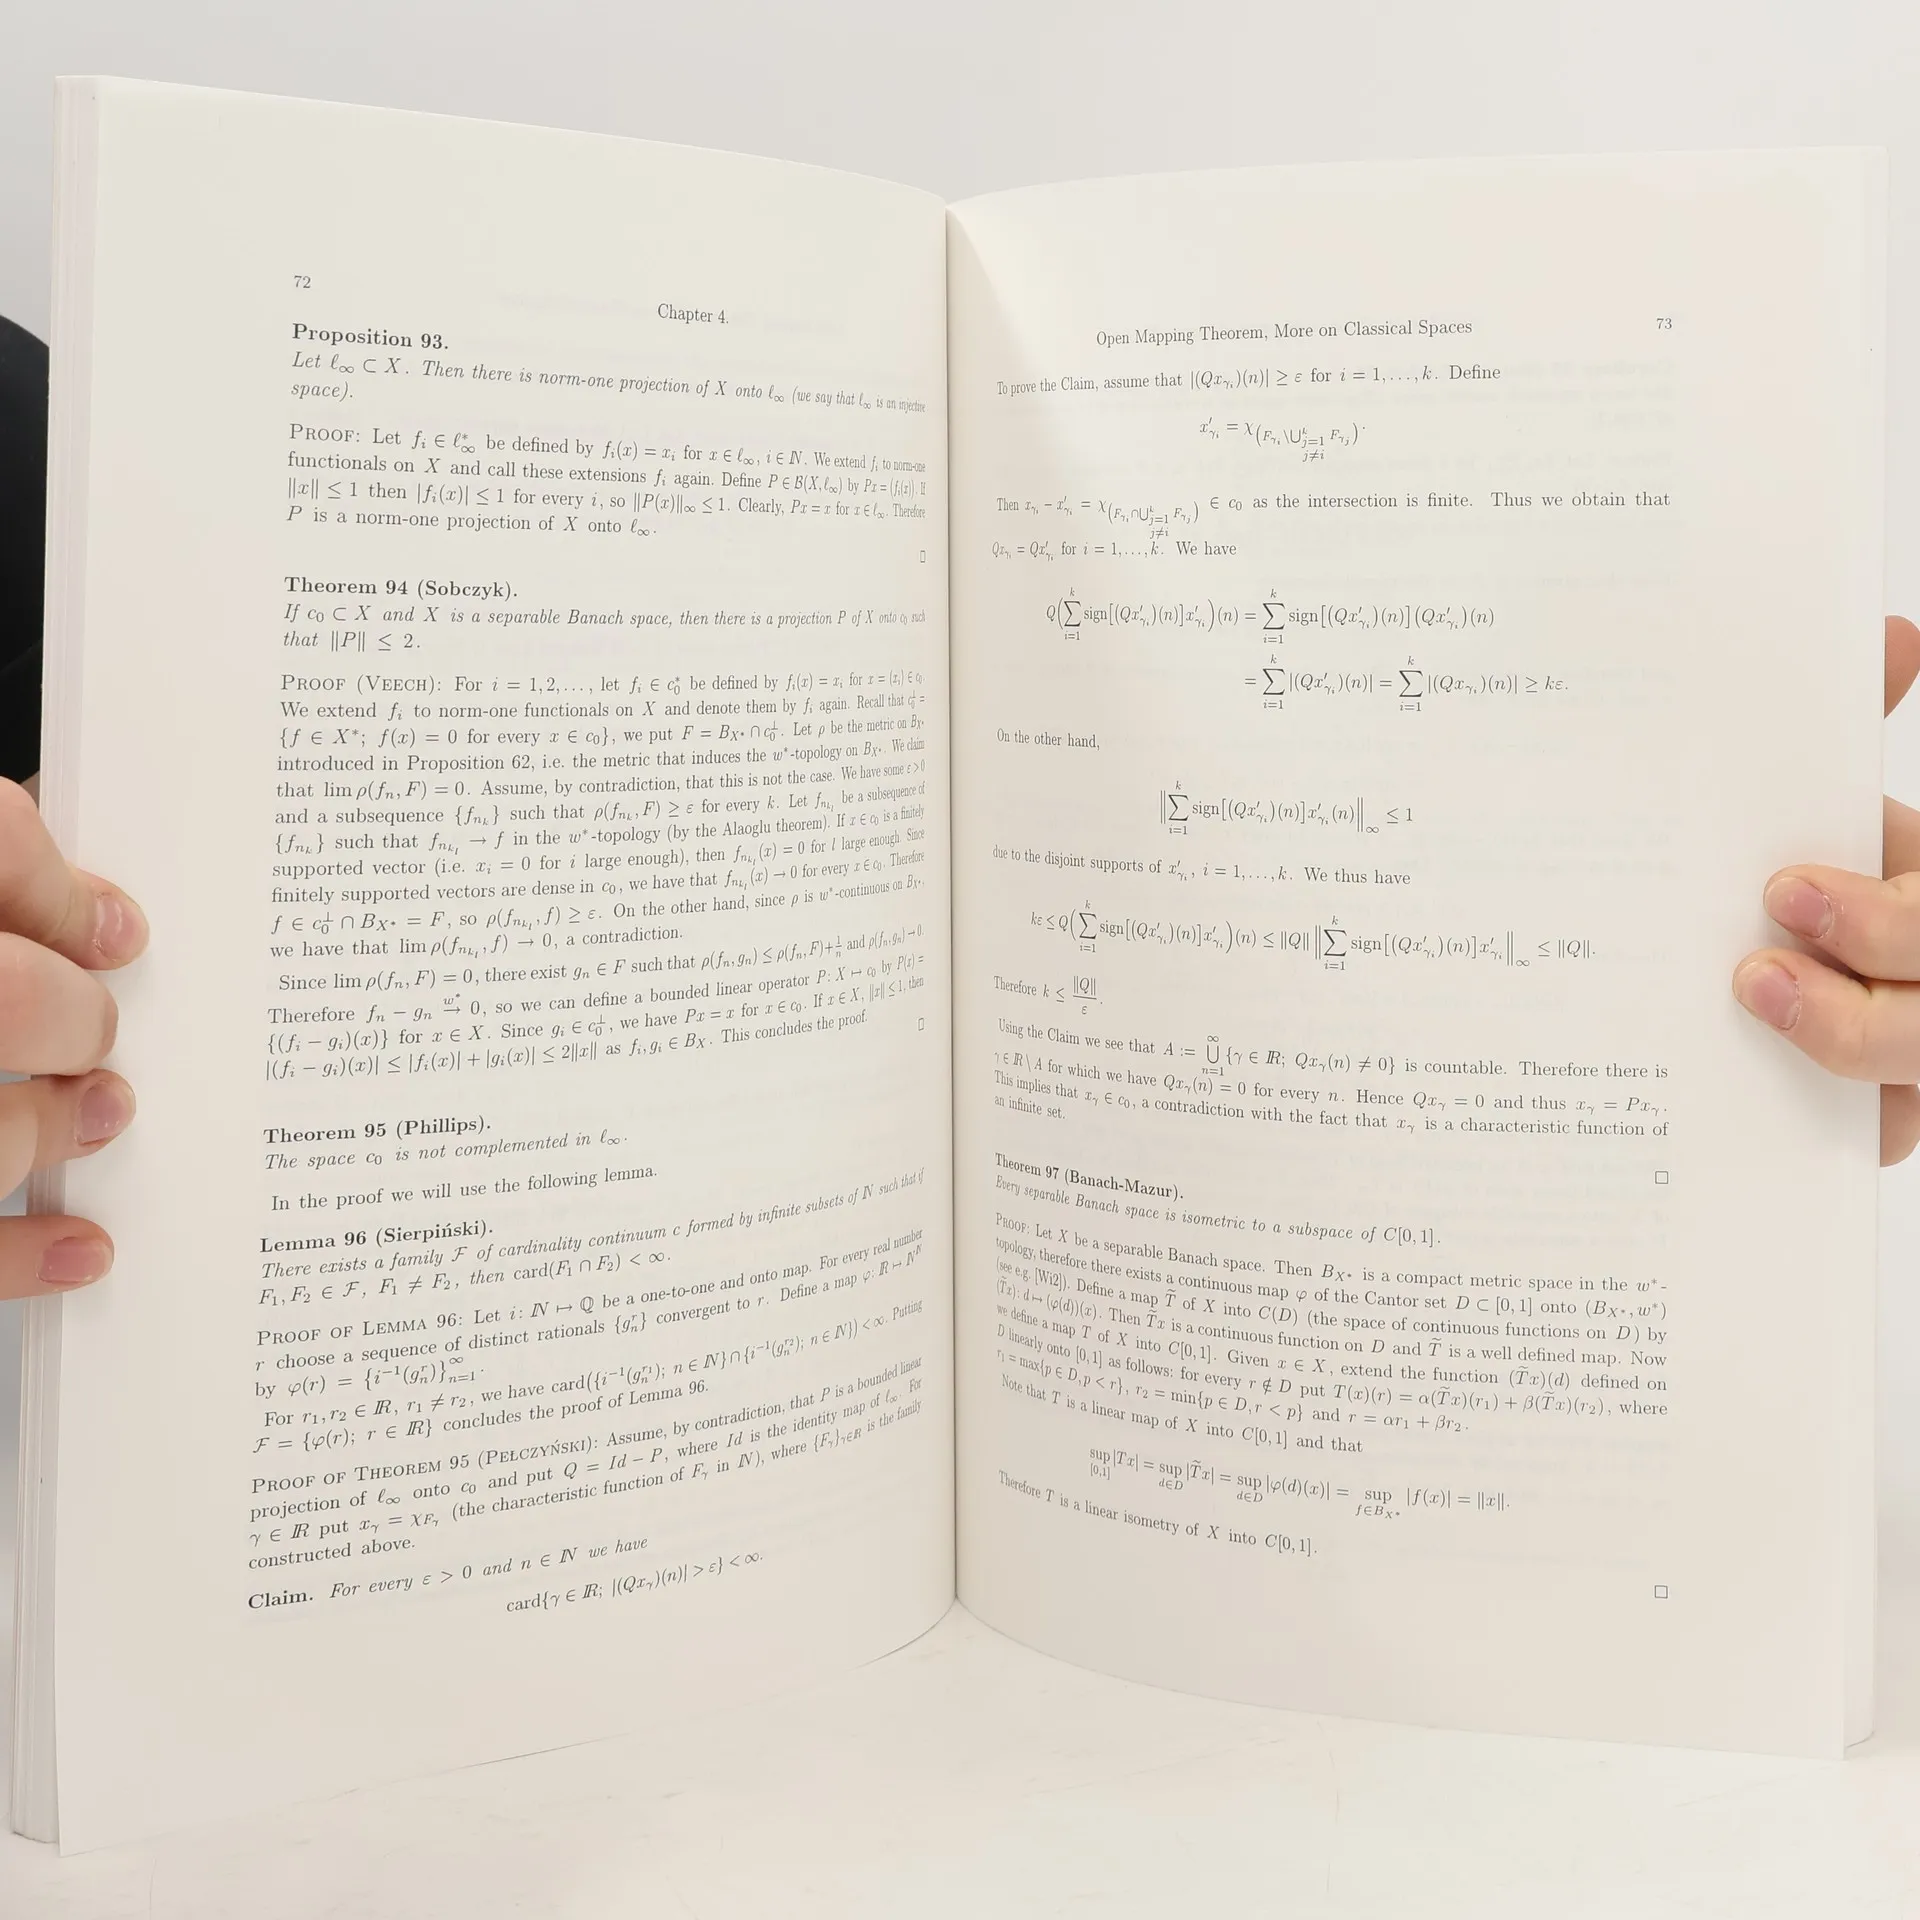 72
Chapter 4.
Proposition 93.
Let ℓ∞ ⊂ X. Then there is norm-one projection of X onto ℓ∞ (we say that ℓ∞ is an injective
space).
PROOF: Let fᵢ ∈ ℓ*∞ be defined by fᵢ(x) = xᵢ for x ∈ ℓ∞, i ∈ ℕ. We extend fᵢ to norm-one
functionals on X and call these extensions fᵢ again. Define P ∈ B(X, ℓ∞) by Px = (fᵢ(x)). If
‖x‖ ≤ 1 then |fᵢ(x)| ≤ 1 for every i, so ‖P(x)‖∞ ≤ 1. Clearly, Px = x for x ∈ ℓ∞. Therefore
P is a norm-one projection of X onto ℓ∞.
□
Theorem 94 (Sobczyk).
If c₀ ⊂ X and X is a separable Banach space, then there is a projection P of X onto c₀ such
that ‖P‖ ≤ 2.
PROOF (VEECH): For i = 1, 2, ..., let fᵢ ∈ c₀* be defined by fᵢ(x) = xᵢ for x = (xᵢ) ∈ c₀.
We extend fᵢ to norm-one functionals on X and denote them by fᵢ again. Recall that c₀^⊥ =
{f ∈ X*; f(x) = 0 for every x ∈ c₀}, we put F = B_{X*} ∩ c₀^⊥. Let ρ be the metric on B_{X*}
introduced in Proposition 62, i.e. the metric that induces the w*-topology on B_{X*}. We claim
that lim ρ(fₙ, F) = 0. Assume, by contradiction, that this is not the case. We have some ε > 0
and a subsequence {f_{n_k}} such that ρ(f_{n_k}, F) ≥ ε for every k. Let f_{n_{k_l}} be a subsequence of
{f_{n_k}} such that f_{n_{k_l}} → f in the w*-topology (by the Alaoglu theorem). If x ∈ c₀ is a finitely
supported vector (i.e. xᵢ = 0 for i large enough), then f_{n_{k_l}}(x) = 0 for l large enough. Since
finitely supported vectors are dense in c₀, we have that f_{n_{k_l}}(x) → 0 for every x ∈ c₀. Therefore
f ∈ c₀^⊥ ∩ B_{X*} = F, so ρ(f_{n_{k_l}}, f) ≥ ε. On the other hand, since ρ is w*-continuous on B_{X*},
we have that lim ρ(f_{n_{k_l}}, f) → 0, a contradiction.
Since lim ρ(fₙ, F) = 0, there exist gₙ ∈ F such that ρ(fₙ, gₙ) ≤ ρ(fₙ, F) + 1/n and ρ(fₙ, gₙ) → 0.
Therefore fₙ − gₙ →^{w*} 0, so we can define a bounded linear operator P: X ↦ c₀ by P(x) =
{(fᵢ − gᵢ)(x)} for x ∈ X. Since gᵢ ∈ c₀^⊥, we have Px = x for x ∈ c₀. If x ∈ X, ‖x‖ ≤ 1, then
|(fᵢ − gᵢ)(x)| ≤ |fᵢ(x)| + |gᵢ(x)| ≤ 2‖x‖ as fᵢ, gᵢ ∈ B_X. This concludes the proof.
□
Theorem 95 (Phillips).
The space c₀ is not complemented in ℓ∞.
In the proof we will use the following lemma.
Lemma 96 (Sierpiński).
There exists a family F of cardinality continuum c formed by infinite subsets of ℕ such that if
F₁, F₂ ∈ F, F₁ ≠ F₂, then card(F₁ ∩ F₂) < ∞.
PROOF OF LEMMA 96: Let i: ℕ ↦ ℚ be a one-to-one and onto map. For every real number
r choose a sequence of distinct rationals {gₙʳ} convergent to r. Define a map φ: ℝ ↦ ℕ^ℕ
by φ(r) = {i⁻¹(gₙʳ)}_{n=1}^∞.
For r₁, r₂ ∈ ℝ, r₁ ≠ r₂, we have card({i⁻¹(gₙ^{r₁}); n ∈ ℕ} ∩ {i⁻¹(gₙ^{r₂}); n ∈ ℕ}) < ∞. Putting
F = {φ(r); r ∈ ℝ} concludes the proof of Lemma 96.
PROOF OF THEOREM 95 (PEŁCZYŃSKI): Assume, by contradiction, that P is a bounded linear
projection of ℓ∞ onto c₀ and put Q = Id − P, where Id is the identity map of ℓ∞. For
γ ∈ ℝ put x_γ = χ_{F_γ} (the characteristic function of F_γ in ℕ), where {F_γ}_{γ∈ℝ} is the family
constructed above.
Claim. For every ε > 0 and n ∈ ℕ we have
card{γ ∈ ℝ; |(Qx_γ)(n)| > ε} < ∞.
Open Mapping Theorem, More on Classical Spaces
73
To prove the Claim, assume that |(Qx_{γᵢ})(n)| ≥ ε for i = 1, ..., k. Define
x'_{γᵢ} = χ_{(F_{γᵢ} \ ⋃_{j=1, j≠i}^k F_{γⱼ})}.
Then x_{γᵢ} − x'_{γᵢ} = χ_{(F_{γᵢ} ∩ ⋃_{j=1, j≠i}^k F_{γⱼ})} ∈ c₀ as the intersection is finite. Thus we obtain that
Qx_{γᵢ} = Qx'_{γᵢ} for i = 1, ..., k. We have
Q(∑_{i=1}^k sign[(Qx'_{γᵢ})(n)]x'_{γᵢ})(n) = ∑_{i=1}^k sign[(Qx'_{γᵢ})(n)](Qx'_{γᵢ})(n)
= ∑_{i=1}^k |(Qx'_{γᵢ})(n)| = ∑_{i=1}^k |(Qx_{γᵢ})(n)| ≥ kε.
On the other hand,
‖∑_{i=1}^k sign[(Qx'_{γᵢ})(n)]x'_{γᵢ}(n)‖∞ ≤ 1
due to the disjoint supports of x'_{γᵢ}, i = 1, ..., k. We thus have
kε ≤ Q(∑_{i=1}^k sign[(Qx'_{γᵢ})(n)]x'_{γᵢ})(n) ≤ ‖Q‖ ‖∑_{i=1}^k sign[(Qx'_{γᵢ})(n)]x'_{γᵢ}‖∞ ≤ ‖Q‖.
Therefore k ≤ ‖Q‖/ε.
Using the Claim we see that A := ⋃_{n=1}^∞ {γ ∈ ℝ; Qx_γ(n) ≠ 0} is countable. Therefore there is
γ ∈ ℝ \ A for which we have Qx_γ(n) = 0 for every n. Hence Qx_γ = 0 and thus x_γ = Px_γ.
This implies that x_γ ∈ c₀, a contradiction with the fact that x_γ is a characteristic function of
an infinite set.
□
Theorem 97 (Banach-Mazur).
Every separable Banach space is isometric to a subspace of C[0, 1].
PROOF: Let X be a separable Banach space. Then B_{X*} is a compact metric space in the w*-
topology, therefore there exists a continuous map φ of the Cantor set D ⊂ [0, 1] onto (B_{X*}, w*)
(see e.g. [Wi2]). Define a map T̃ of X into C(D) (the space of continuous functions on D) by
(T̃x): d ↦ (φ(d))(x). Then T̃x is a continuous function on D and T̃ is a well defined map. Now
we define a map T of X into C[0, 1]. Given x ∈ X, extend the function (T̃x)(d) defined on
D linearly onto [0, 1] as follows: for every r ∉ D put T(x)(r) = α(T̃x)(r₁) + β(T̃x)(r₂), where
r₁ = max{p ∈ D, p < r}, r₂ = min{p ∈ D, r < p} and r = αr₁ + βr₂.
Note that T is a linear map of X into C[0, 1] and that
sup_{[0,1]} |Tx| = sup_{d∈D} |T̃x| = sup_{d∈D} |φ(d)(x)| = sup_{f∈B_{X*}} |f(x)| = ‖x‖.
Therefore T is a linear isometry of X into C[0, 1].
□